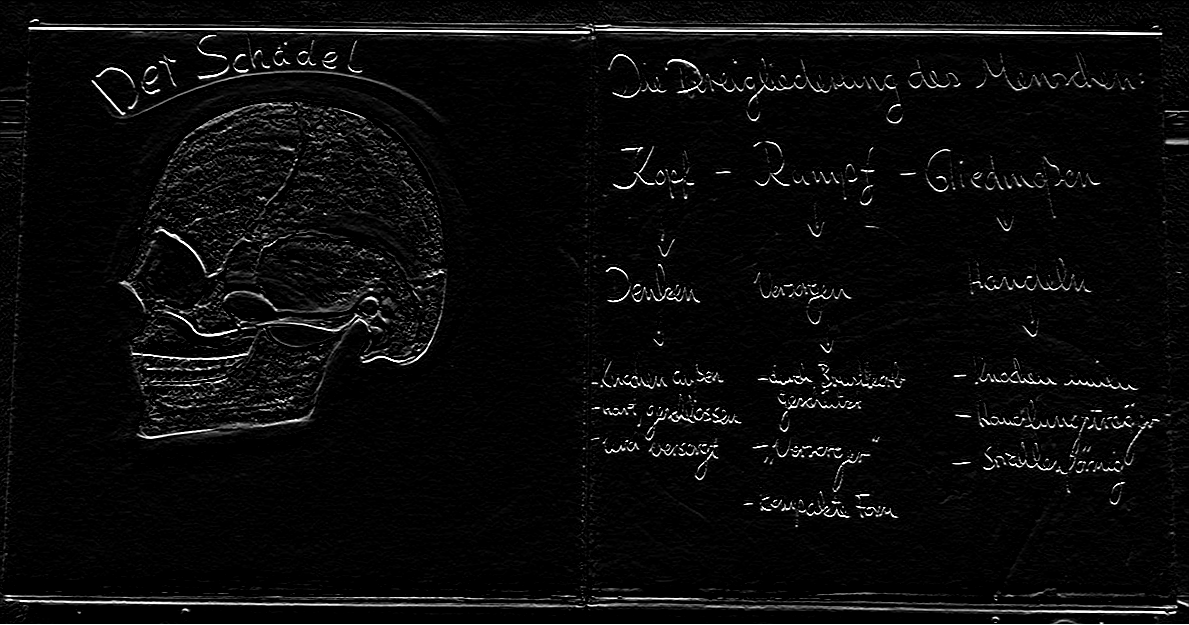 Der Schädel
Die Dreigliederung des Menschen:
Kopf - Rumpf - Gliedmaßen
Denken Versorgen Handeln
- Knochen außen
- hart, geschlossen
- wird versorgt
- durch Brustkorb
geschützt
- "Versorger"
- kompakte Form
- Knochen innen
- Handlungsträger
- strahlenförmig